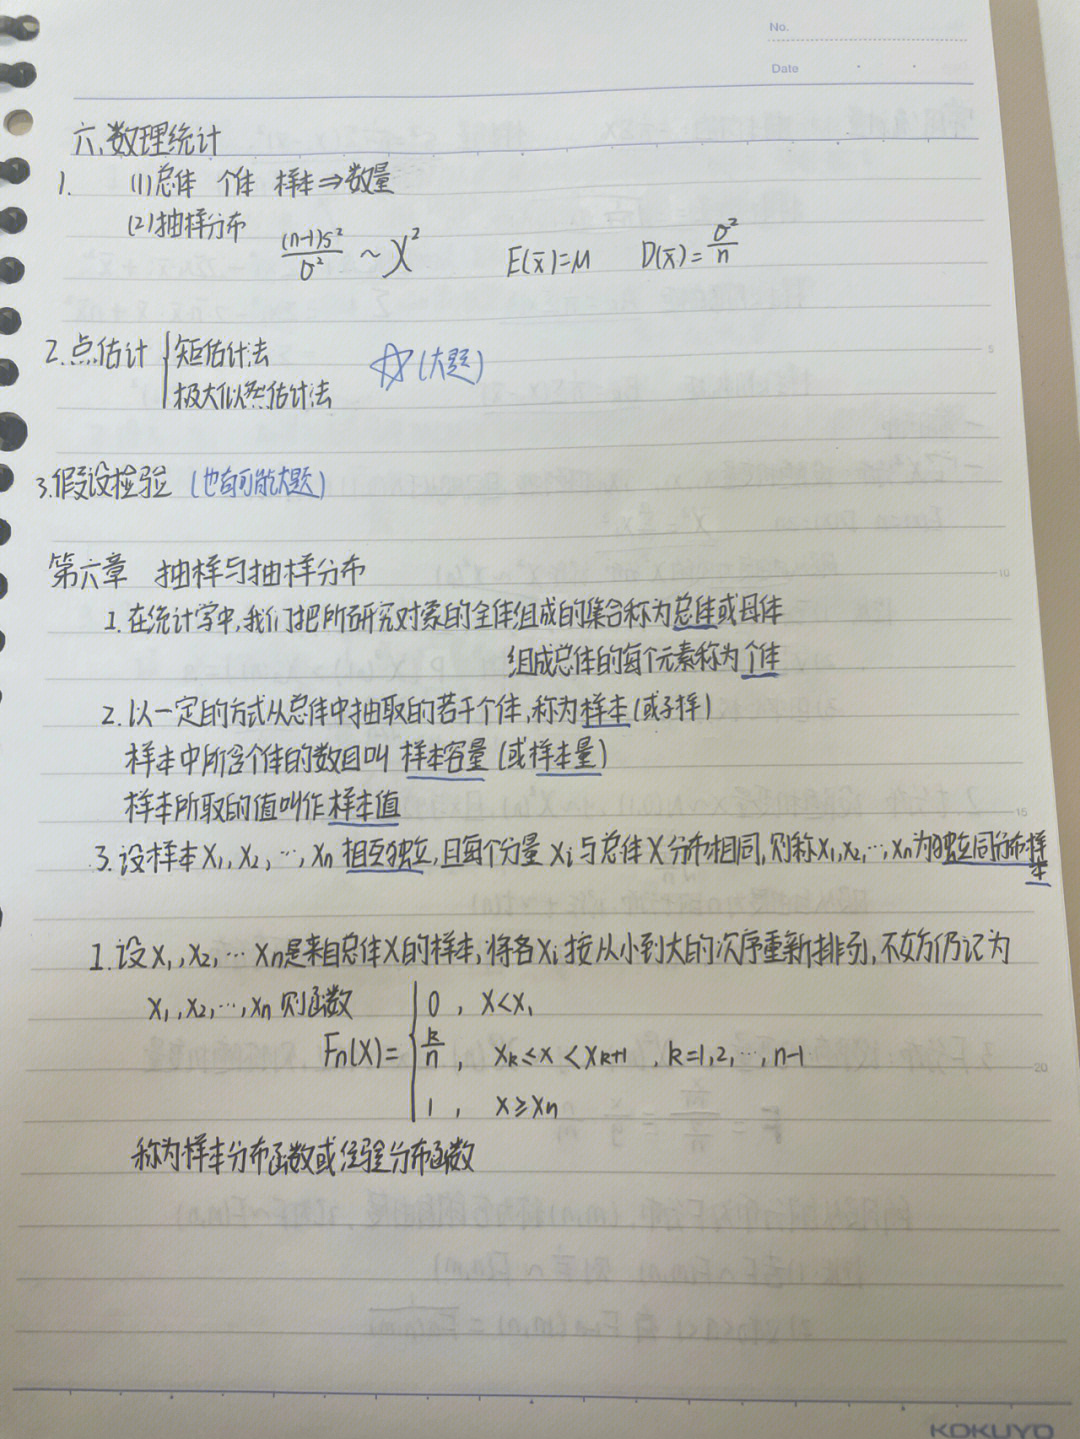 No.
Date
六、数理统计
1. (1)总体 个体 样本⇒数量
(2)抽样分布 (n-1)S²/σ² ~ χ² E(x̄)=μ D(x̄)=σ²/n
2.点估计 { 矩估计法 ☆(大题)
极大似然估计法
3.假设检验 (也有可能大题)
第六章 抽样与抽样分布
1. 在统计学中,我们把所研究对象的全体组成的集合称为总体或母体
组成总体的每个元素称为个体
2. 以一定的方式从总体中抽取的若干个体,称为样本(或子样)
样本中所含个体的数目叫样本容量(或样本量)
样本所取的值叫作样本值
3. 设样本X₁,X₂,…,Xn 相互独立,且每个分量Xi与总体X分布相同,则称X₁,X₂,…,Xn为独立同分布样本
1. 设X₁,X₂,…Xn是来自总体X的样本,将各Xi按从小到大的次序重新排列,不妨仍记为
X₁,X₂,…,Xn 则函数
Fn(X)= { 0 , X<X₁
k/n , Xk≤X<Xk+1 , k=1,2,…,n-1
1 , X≥Xn
称为样本分布函数或经验分布函数
5
10
15
20
KOKUYO